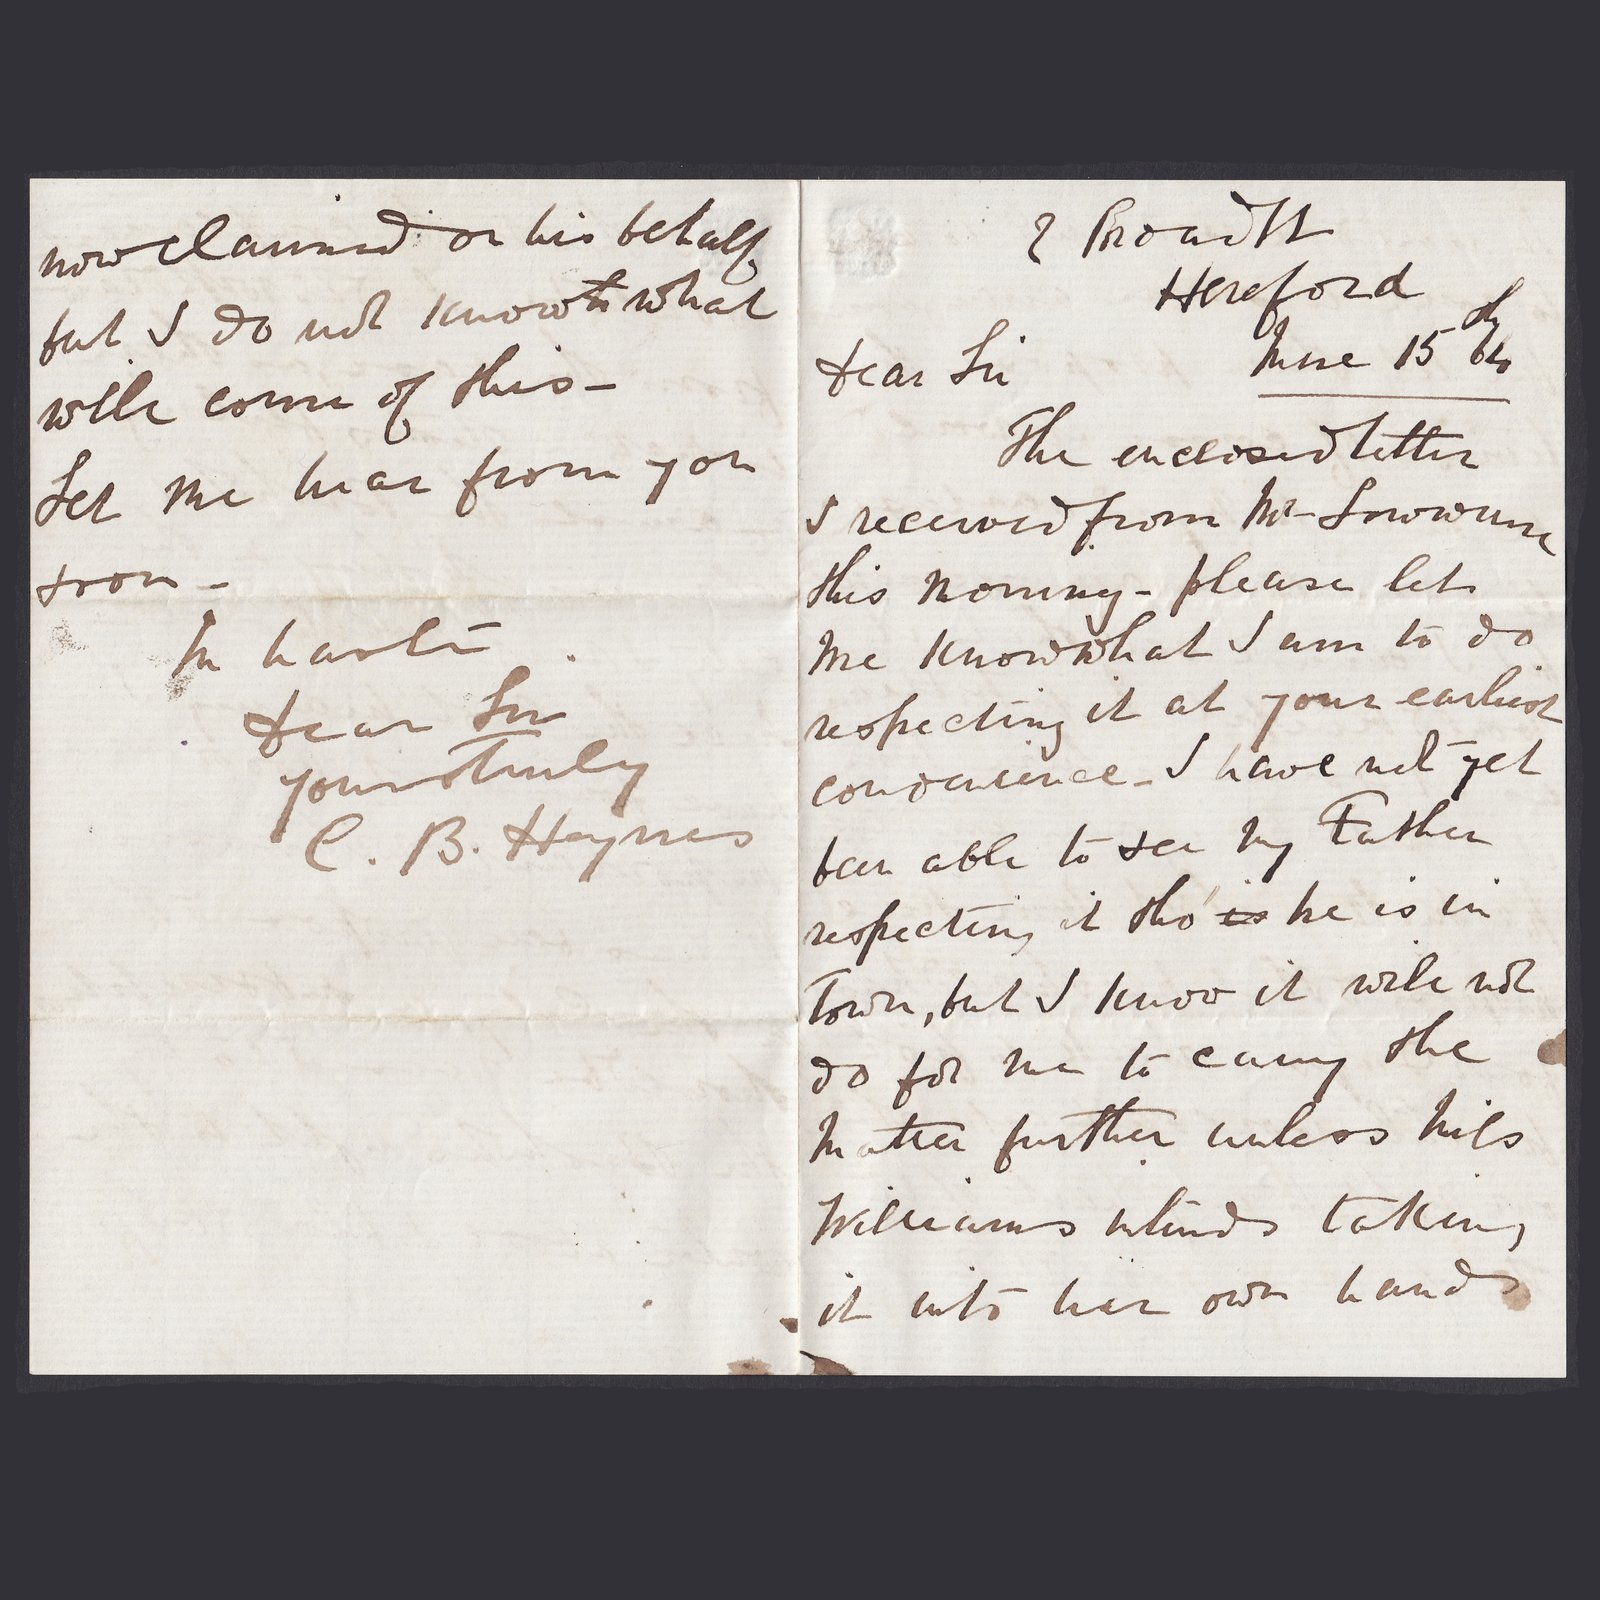 2 Broad St
Hereford
June 15th 64
Dear Sir
The enclosed letter
I received from Mr
this morning - please let
me know what I am to do
respecting it at your earliest
convenience - I have not yet
been able to see my Father
respecting it tho' is he is in
Town, but I know it will not
do for me to carry the
matter further unless Miss
Williams minds taking
it into her own hands
now claimed on his behalf,
but I do not know what
will come of this -
Let me hear from you
soon -
In haste
Dear Sir
yours truly
C. B. Haynes